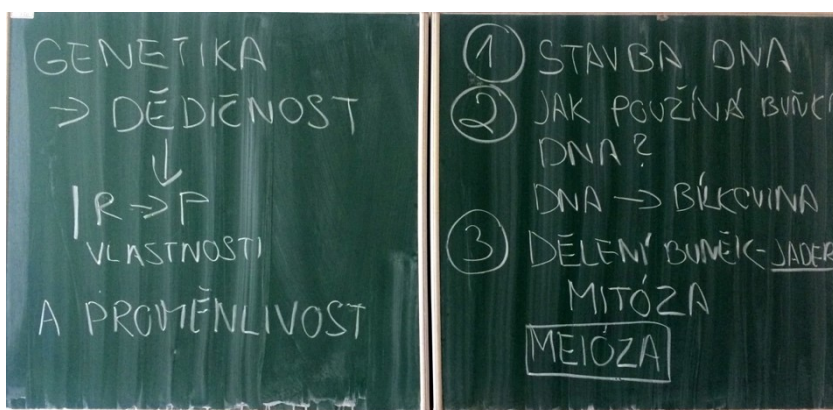 GENETIKA
→ DĚDIČNOST
↓
R → P
VLASTNOSTI
A PROMĚNLIVOST
1 STAVBA DNA
2 JAK POUŽÍVÁ BUŇK
DNA?
DNA → BÍLKOVINA
3 DĚLENÍ BUNĚK - JADER
MITÓZA
MEIÓZA